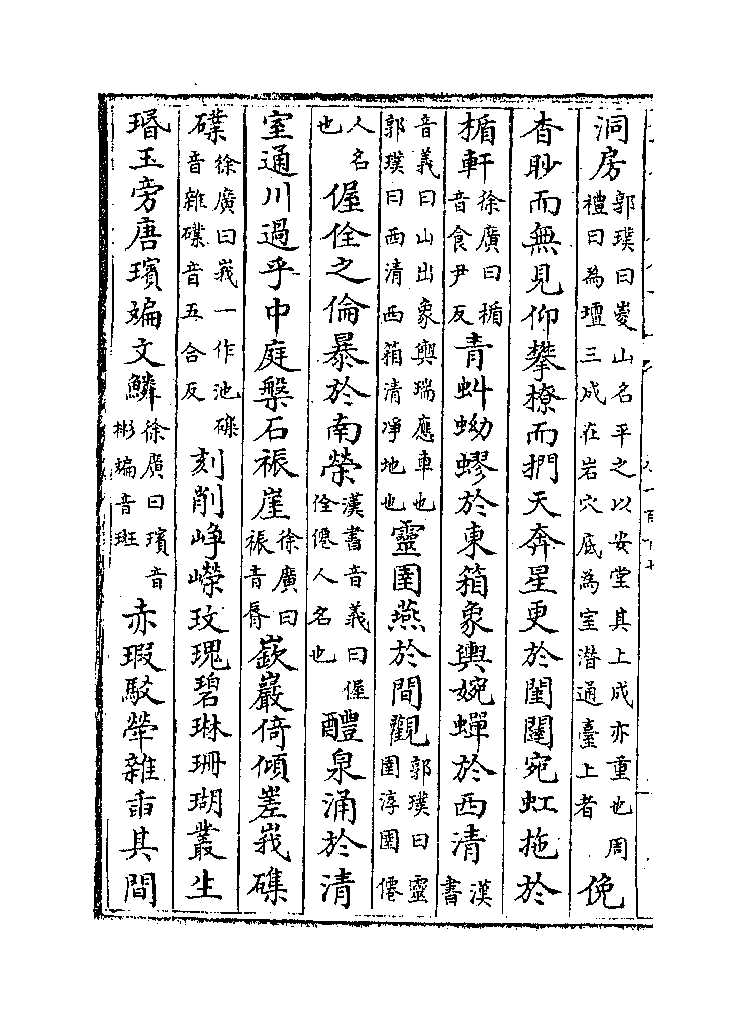 洞房郭璞曰嵏山名平之以安堂其上成亦重也周禮曰為壇三成在岩穴底為室潜通臺上者俛
杳眇而無見仰攀橑而捫天奔星更於閨闥宛虹拖於
楯軒徐廣曰楯音食尹反青虯蚴蟉於東箱象輿婉蟬於西清漢書
音義曰山出象輿瑞應車也郭璞曰西清西箱清淨地也靈圉燕於間觀郭璞曰靈圉淳圉僊
人名也偓佺之倫暴於南榮漢書音義曰偓佺僊人名也醴泉涌於清
室通川過乎中庭槃石裖崖徐廣曰裖音脣嶔巖倚傾嵳峩磼
礏徐廣曰峩一作池磼音雜礏音五合反刻削崢嶸玫瑰碧琳珊瑚叢生
瑉玉旁唐璸斒文鱗徐廣曰璸音彬斒音班赤瑕駮犖雜臿其間